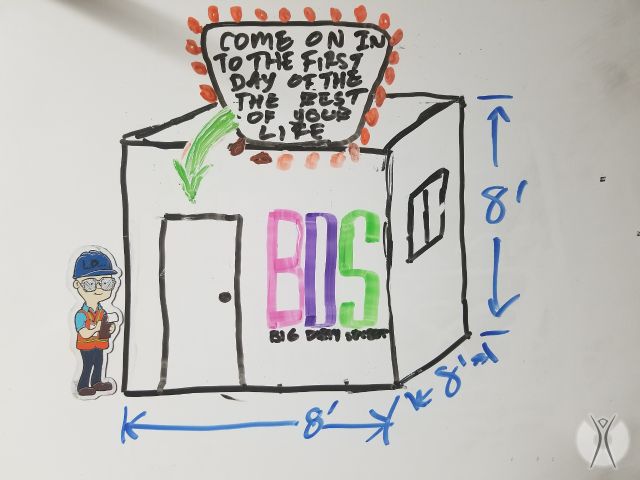 COME ON IN
TO THE FIRST
DAY OF THE
THE BEST
OF YOUR
LIFE
8'
BDS
BIG
8'
8'